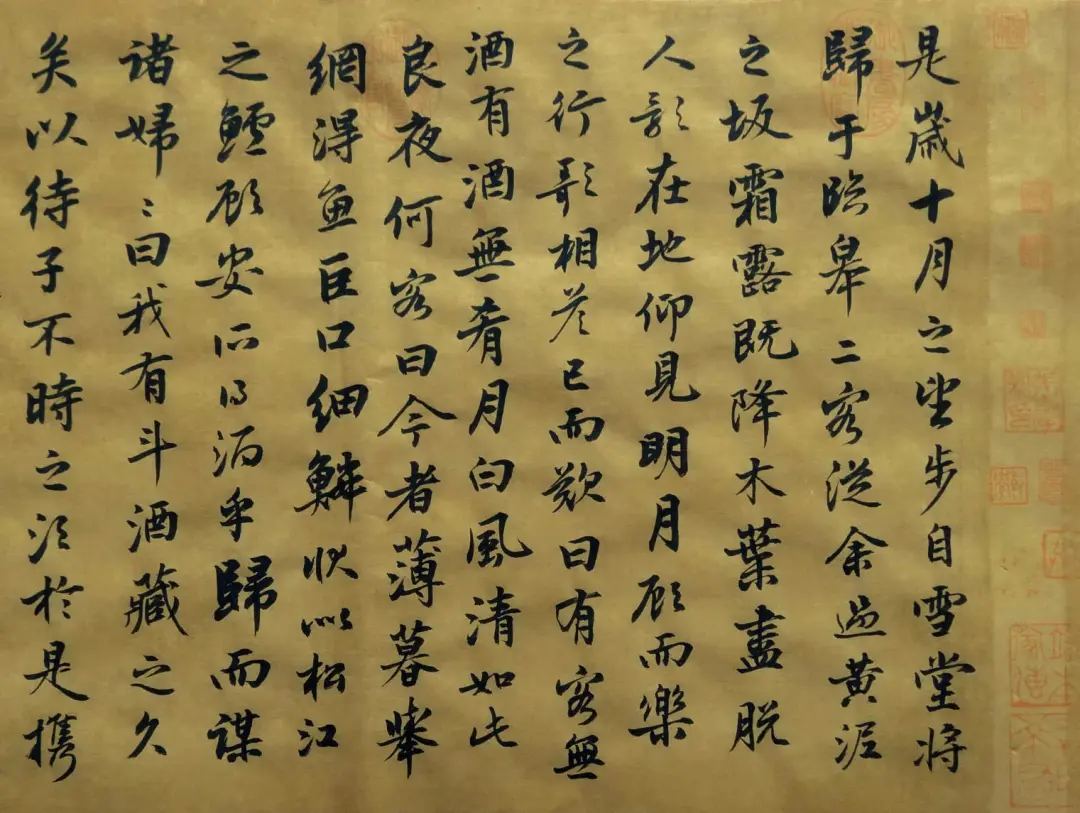 是歲十月之望步自雪堂將
歸于臨皋二客從余過黃泥
之坂霜露既降木葉盡脫
人影在地仰見明月顧而樂
之行歌相答已而歎曰有客無
酒有酒無肴月白風清如此
良夜何客曰今者薄暮舉
網得魚巨口細鱗狀似松江
之鱸顧安所得酒乎歸而謀
諸婦〻曰我有斗酒藏之久
矣以待子不時之須於是攜